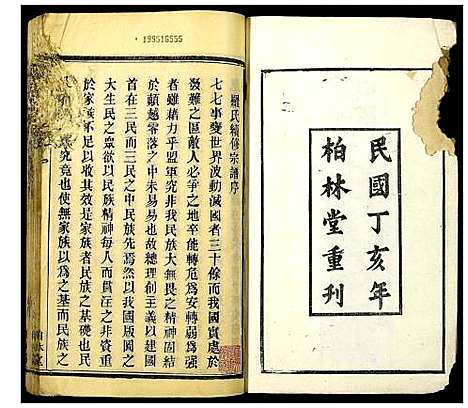 民國丁亥年
柏林堂重刊
199516555
羅氏續修宗譜序
七七事變世界波動滅國者三十餘而我國實處於
最難之區敵人必爭之地卒能轉危為安轉弱為強
者雖藉力乎盟軍究非我民族大無畏之精神團結
於顛越零落之中未易易也故總理創主義以建國
首在三民而三民之中民族先焉然以中國版圖之
大生民之眾欲以一種精神每人而貫注之非資重
於家族不足以收其效是家族者民族之基礎也民
究竟也使無家族以為之基而民族之